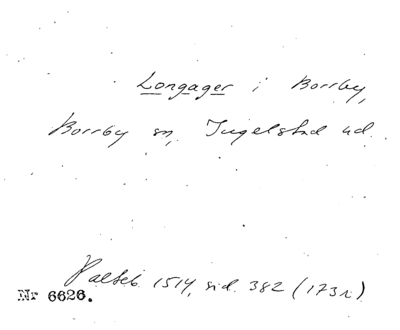 Longager i Borrby,
Borrby sn, Ingelstad hd.
Palteb. 1514, sid. 382 (173r)
Nr 6626.